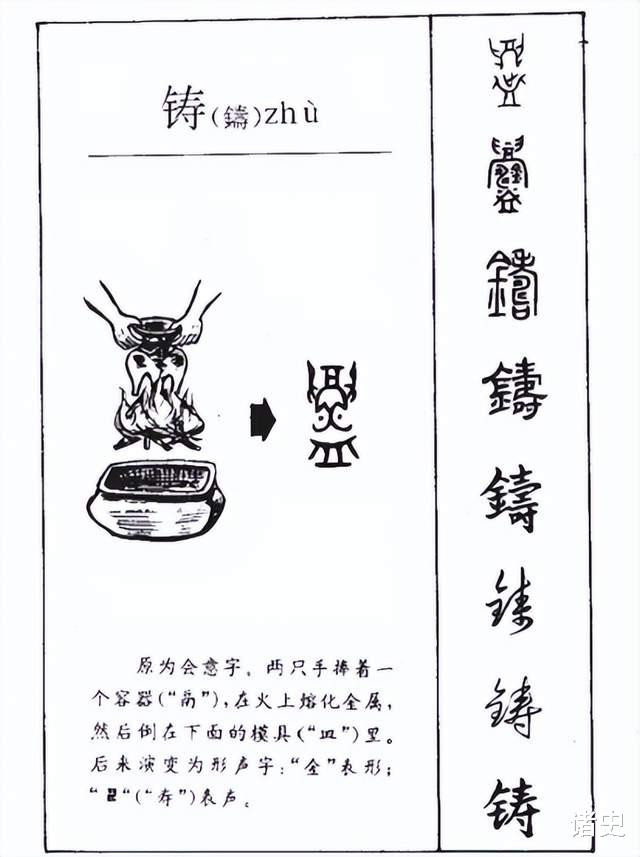 铸(鑄)zhù
原为会意字。两只手捧着一
个容器(“鬲”),在火上熔化金属,
然后倒在下面的模具(“皿”)里。
后来演变为形声字:“金”表形;
“(“寿”)表声。
鑄
鑄
鑄
铸
铸
诸史